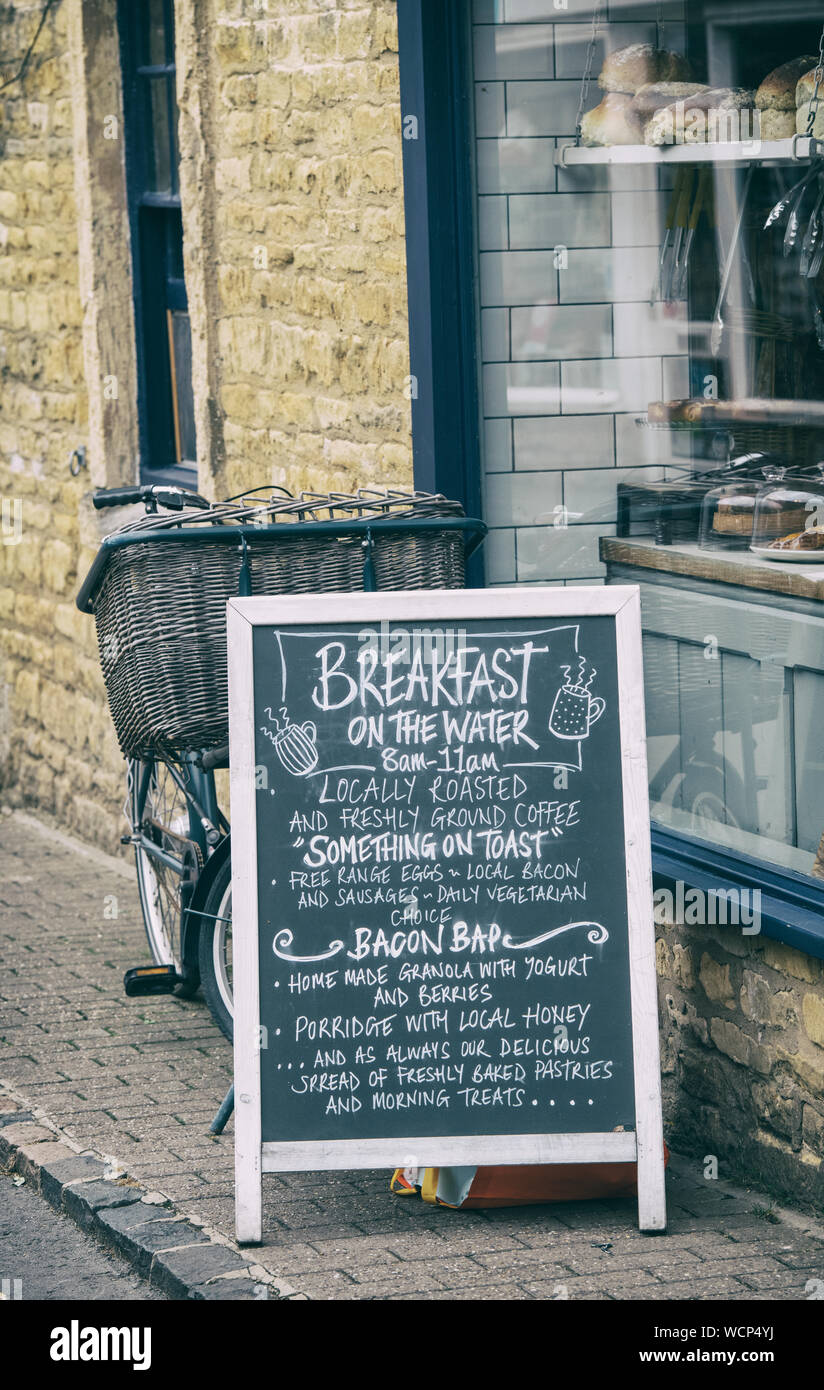 BREAKFAST
ON THE WATER
8am-11am
• LOCALLY ROASTED
AND FRESHLY GROUND COFFEE
"SOMETHING ON TOAST"
• FREE RANGE EGGS ~ LOCAL BACON
AND SAUSAGES ~ DAILY VEGETARIAN
CHOICE
BACON BAP
• HOME MADE GRANOLA WITH YOGURT
AND BERRIES
• PORRIDGE WITH LOCAL HONEY
... AND AS ALWAYS OUR DELICIOUS
SPREAD OF FRESHLY BAKED PASTRIES
AND MORNING TREATS . . . .
a
alamy
Image ID: WCP4YJ
www.alamy.com